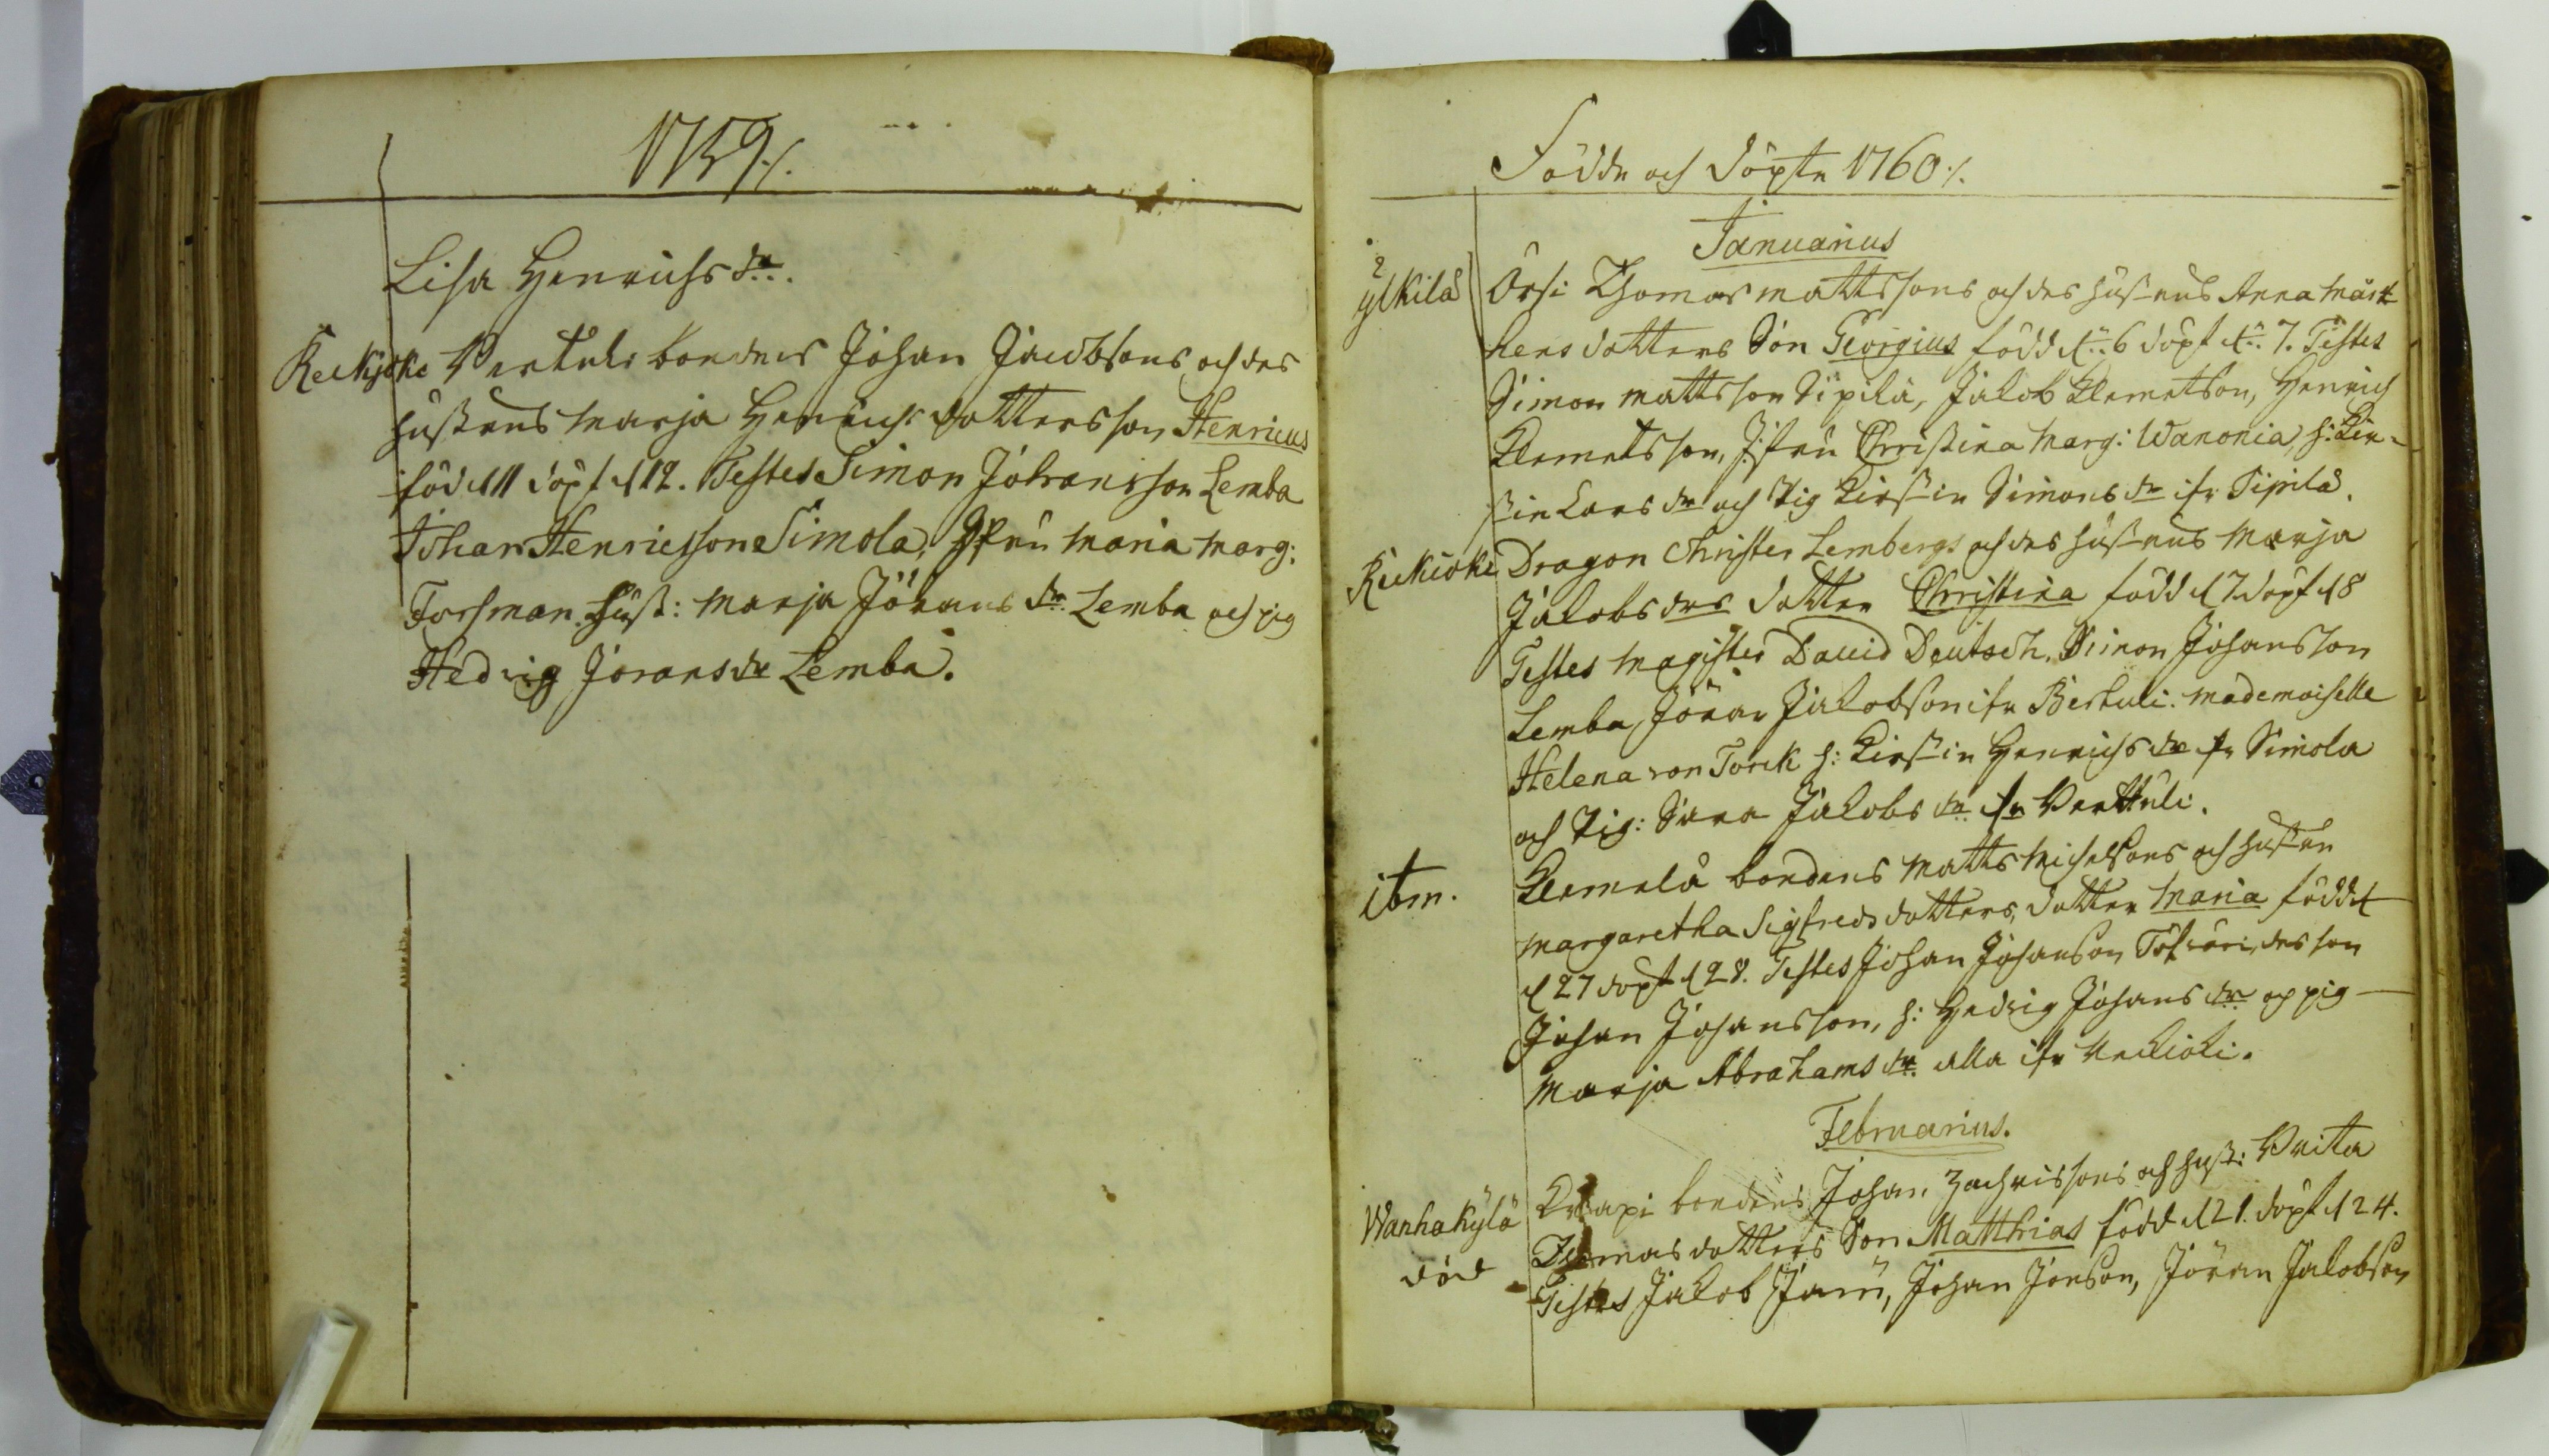 1759 ./.
Lisa Henrichs dr.
Keckjoke Pertuli bondens Johan Jacobsons och des
hustrus Marja Henrichs dotters son Henricus
föd d 11 döpt d 12. Testes Simon Johansson Lemba
Johan Henricsson Simola, Jfru Maria Marg:
Forsman hust: Marja Jörans dr. Lemba och pig
Hedvig Jörans dr Lemba.
Födde och döpte 1760 ./.
Januarius
ylkilä Orsi Thomas Mattssons och des hustrus Anna Mårt
hens dotters Son Georgius född d: 6 döpt d: 7. Testes
Simon Mattsson Sipilä, Jakob Klemetson, Henrich
Klemetsson, Jfru Christina Marg: Wanonia, h: Kir-
stin Lars dr och Pig Kirstin Simons dr ifr Sipilä.
Keckioke Dragon Christer Lembergs och des hustrus Marja
Jakobs drs dotter Christina född d 7 döpt d 8
Testes Magister David Deutsch, Simon Johansson
Lemba, Jöran Jakobson ifr Bertuli. Mademoiselle
Helena von Torck h: Kirstin Henrichs dr fr Simola
och Pig: Sara Jakobs dr fr Perttuli.
itm. Klemelä bondens Matts Michelsons och hustru
Margaretha Sigfreds dotters, dotter Maria född
d 27 döpt d 28. Testes Johan Johanson des son
Johan Johansson, h: Hedvig Johans dr och pig
Marja Abrahams dr. alla ifr Keckioki.
Februarius.
Wanhakylä Knapi bondens Johan Zachrissons och hust: Brita
död Thomas dotters Son Matthias född d 21. döpt d 24.
Testes Jakob Jani, Johan Jonson, Jöran Jakobson